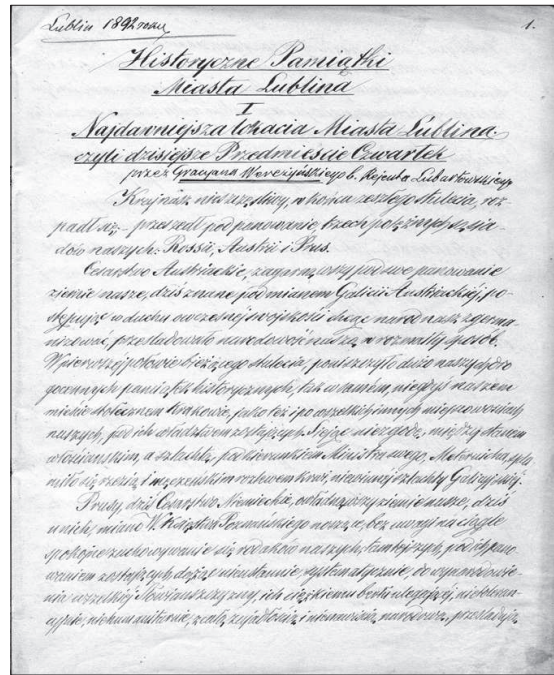 Lublin 1892 roku
1.
Historyczne Pamiątki
Miasta Lublina
I
Najdawniejsza lokacia Miasta Lublina
czyli dzisiejsze Przedmieście Czwartek
przez Gracyana Werczyńskiego b. Rejenta Lubartowskiego
Kraj nasz nieszczęśliwy, w końcu zeszłego stulecia, roz
padł się - przeszedł pod panowanie, trzech potężnych sąsia
dów naszych: Rossii, Austrii i Prus.
Cesarstwo Austriackie, zagarnąwszy pod swe panowanie
ziemie nasze, dziś znane pod mianem Galicii Austriackiéj, po-
stępując w duchu owczesnéj swojskości chcąc naród nasz zgerma
nizować, prześladowało narodowość naszą, w rozmaity sposób.
W pierwszéj połowie bieżącego stulecia, poniszczyło dużo naszych dro
gocennych pamiątek historycznych, tak w samém, niegdyś naszem
mieście stołecznem Krakowie, jako też i po wszelkich innych miejscowościach
naszych, pod ich władztwem zostających. Siejąc niezgodę, między stanem
włościańskim, a szlachtą, pod kierunkiem Ministra swego, Metternicha, spla
miło się rzezią, i męczeńskim rozlewem krwi, niewinnéj szlachty Galicyjskiéj.
Prusy, dziś Cesarstwo Niemieckie, owładnąwszy ziemie nasze, dziś
u nich, miano W. Księstwa Poznańskiego noszące, bez uwagi na ciągle
spokojne zachowywanie się rodaków naszych, tamtejszych, pod ich pano
waniem zostających, dążąc nieustannie, systematycznie, do wynarodowie
nia wszelkiéj Słowiańszczyzny, ich ciężkiemu berłu ulegającéj, nietoleran
cyjnie, niehumanitarnie, z całą zajadłością i nienawiścią narodową, prześladują